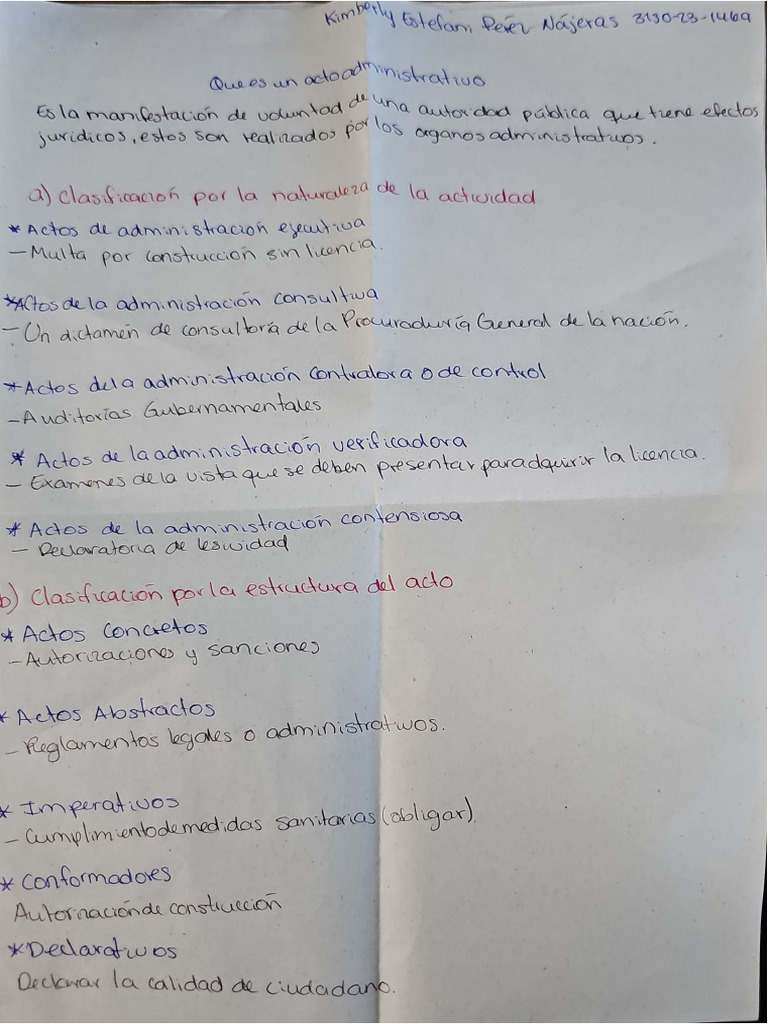 Kimberly Estefani Peréz Nájeras 3130-23-1469
Que es un acto administrativo
Es la manifestación de voluntad de una autoridad pública que tiene efectos
jurídicos, estos son realizados por los organos administrativos.
a) Clasificación por la naturaleza de la actividad
* Actos de administración ejecutiva
- Multa por construcción sin licencia.
* Actos de la administración consultiva
- Un dictamén de consultoría de la Procuraduría General de la nación.
* Actos de la administración Contralora o de control
- Auditorías Gubernamentales
* Actos de la administración verificadora
- Examenes de la vista que se deben presentar para adquirir la licencia.
* Actos de la administración contensiosa
- Declaratoria de lesividad
b) Clasificación por la estructura del acto
* Actos Concretos
- Autorizaciones y sanciones
* Actos Abstractos
- Reglamentos legales o administrativos.
* Imperativos
- Cumplimiento de medidas sanitarias (obligar).
* Conformadores
Autorización de construcción
* Declarativos
Declarar la calidad de ciudadano.